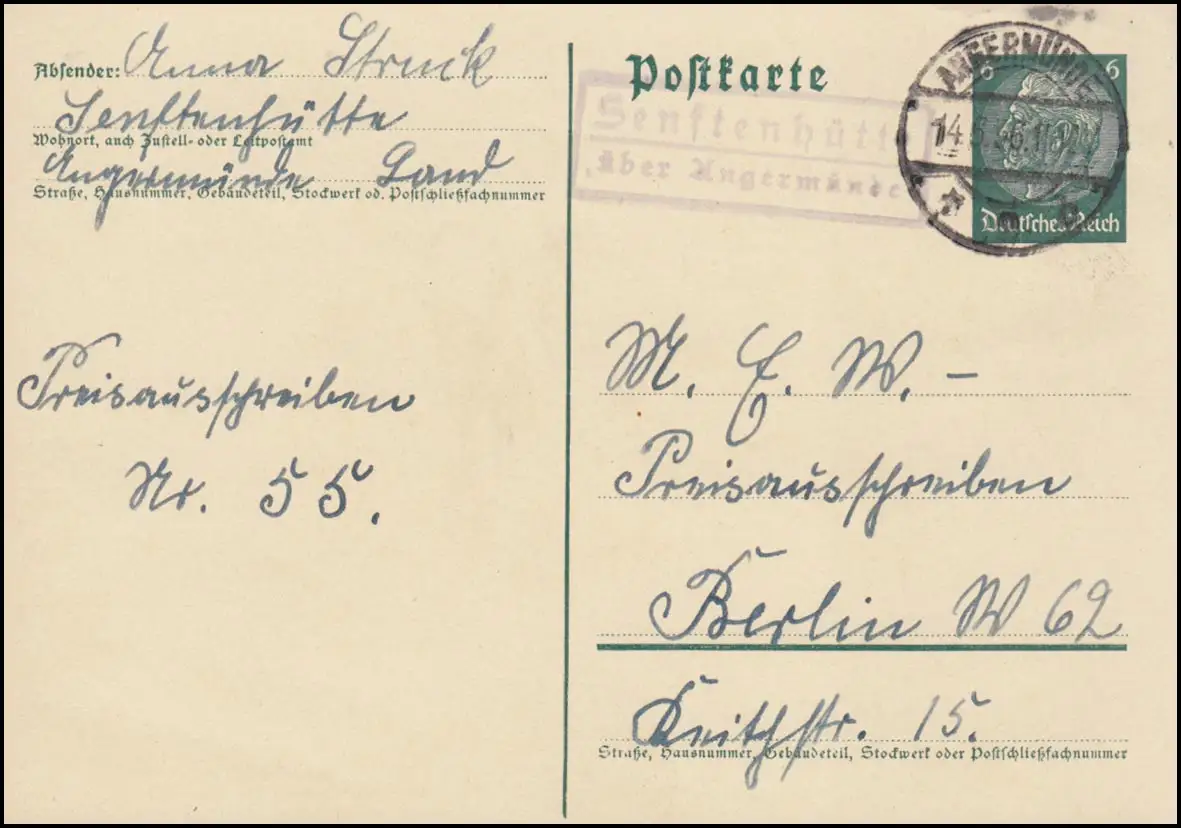 Absender: Anna Struck
Senftenhütte
Wohnort, auch Zustell- oder Leitpostamt
Angermünde Land
Straße, Hausnummer, Gebäudeteil, Stockwerk od. Postschließfachnummer
Preisausschreiben
Nr. 55.
Postkarte
Senftenhütte
über Angermünde
ANGERMÜNDE
6 6
14.5.
Deutsches Reich
M. E. W. –
Preisausschreiben
Berlin W 62
Keithstr. 15.
Straße, Hausnummer, Gebäudeteil, Stockwerk oder Postschließfachnummer